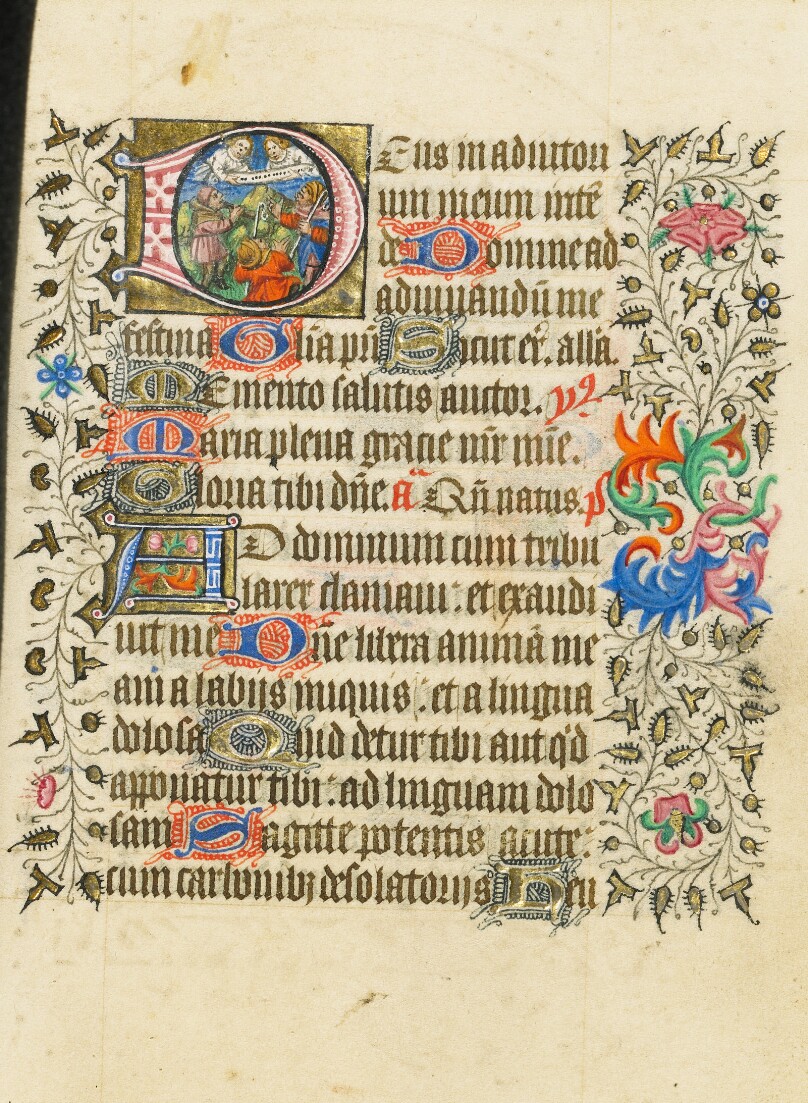 Deus in adiutori
um meum intē
de Domine ad
adiuuandū me
festina Gl̄ia pr̄i Sicut er̄. all̄a.
Memento salutis auctor. ps
Maria plena gracie mr̄ mīe.
Gloria tibi dn̄e. a Qn̄ natus. p
AD dominum cum tribu
larer clamaui: et exaudi
uit me Dn̄e libera animā me
am a labijs iniquis: et a lingua
dolosa Quid detur tibi aut q'd
apponatur tibi: ad linguam dolo
sam Sagitte potentis acute:
cum carbonibꝫ desolatorijs Heu